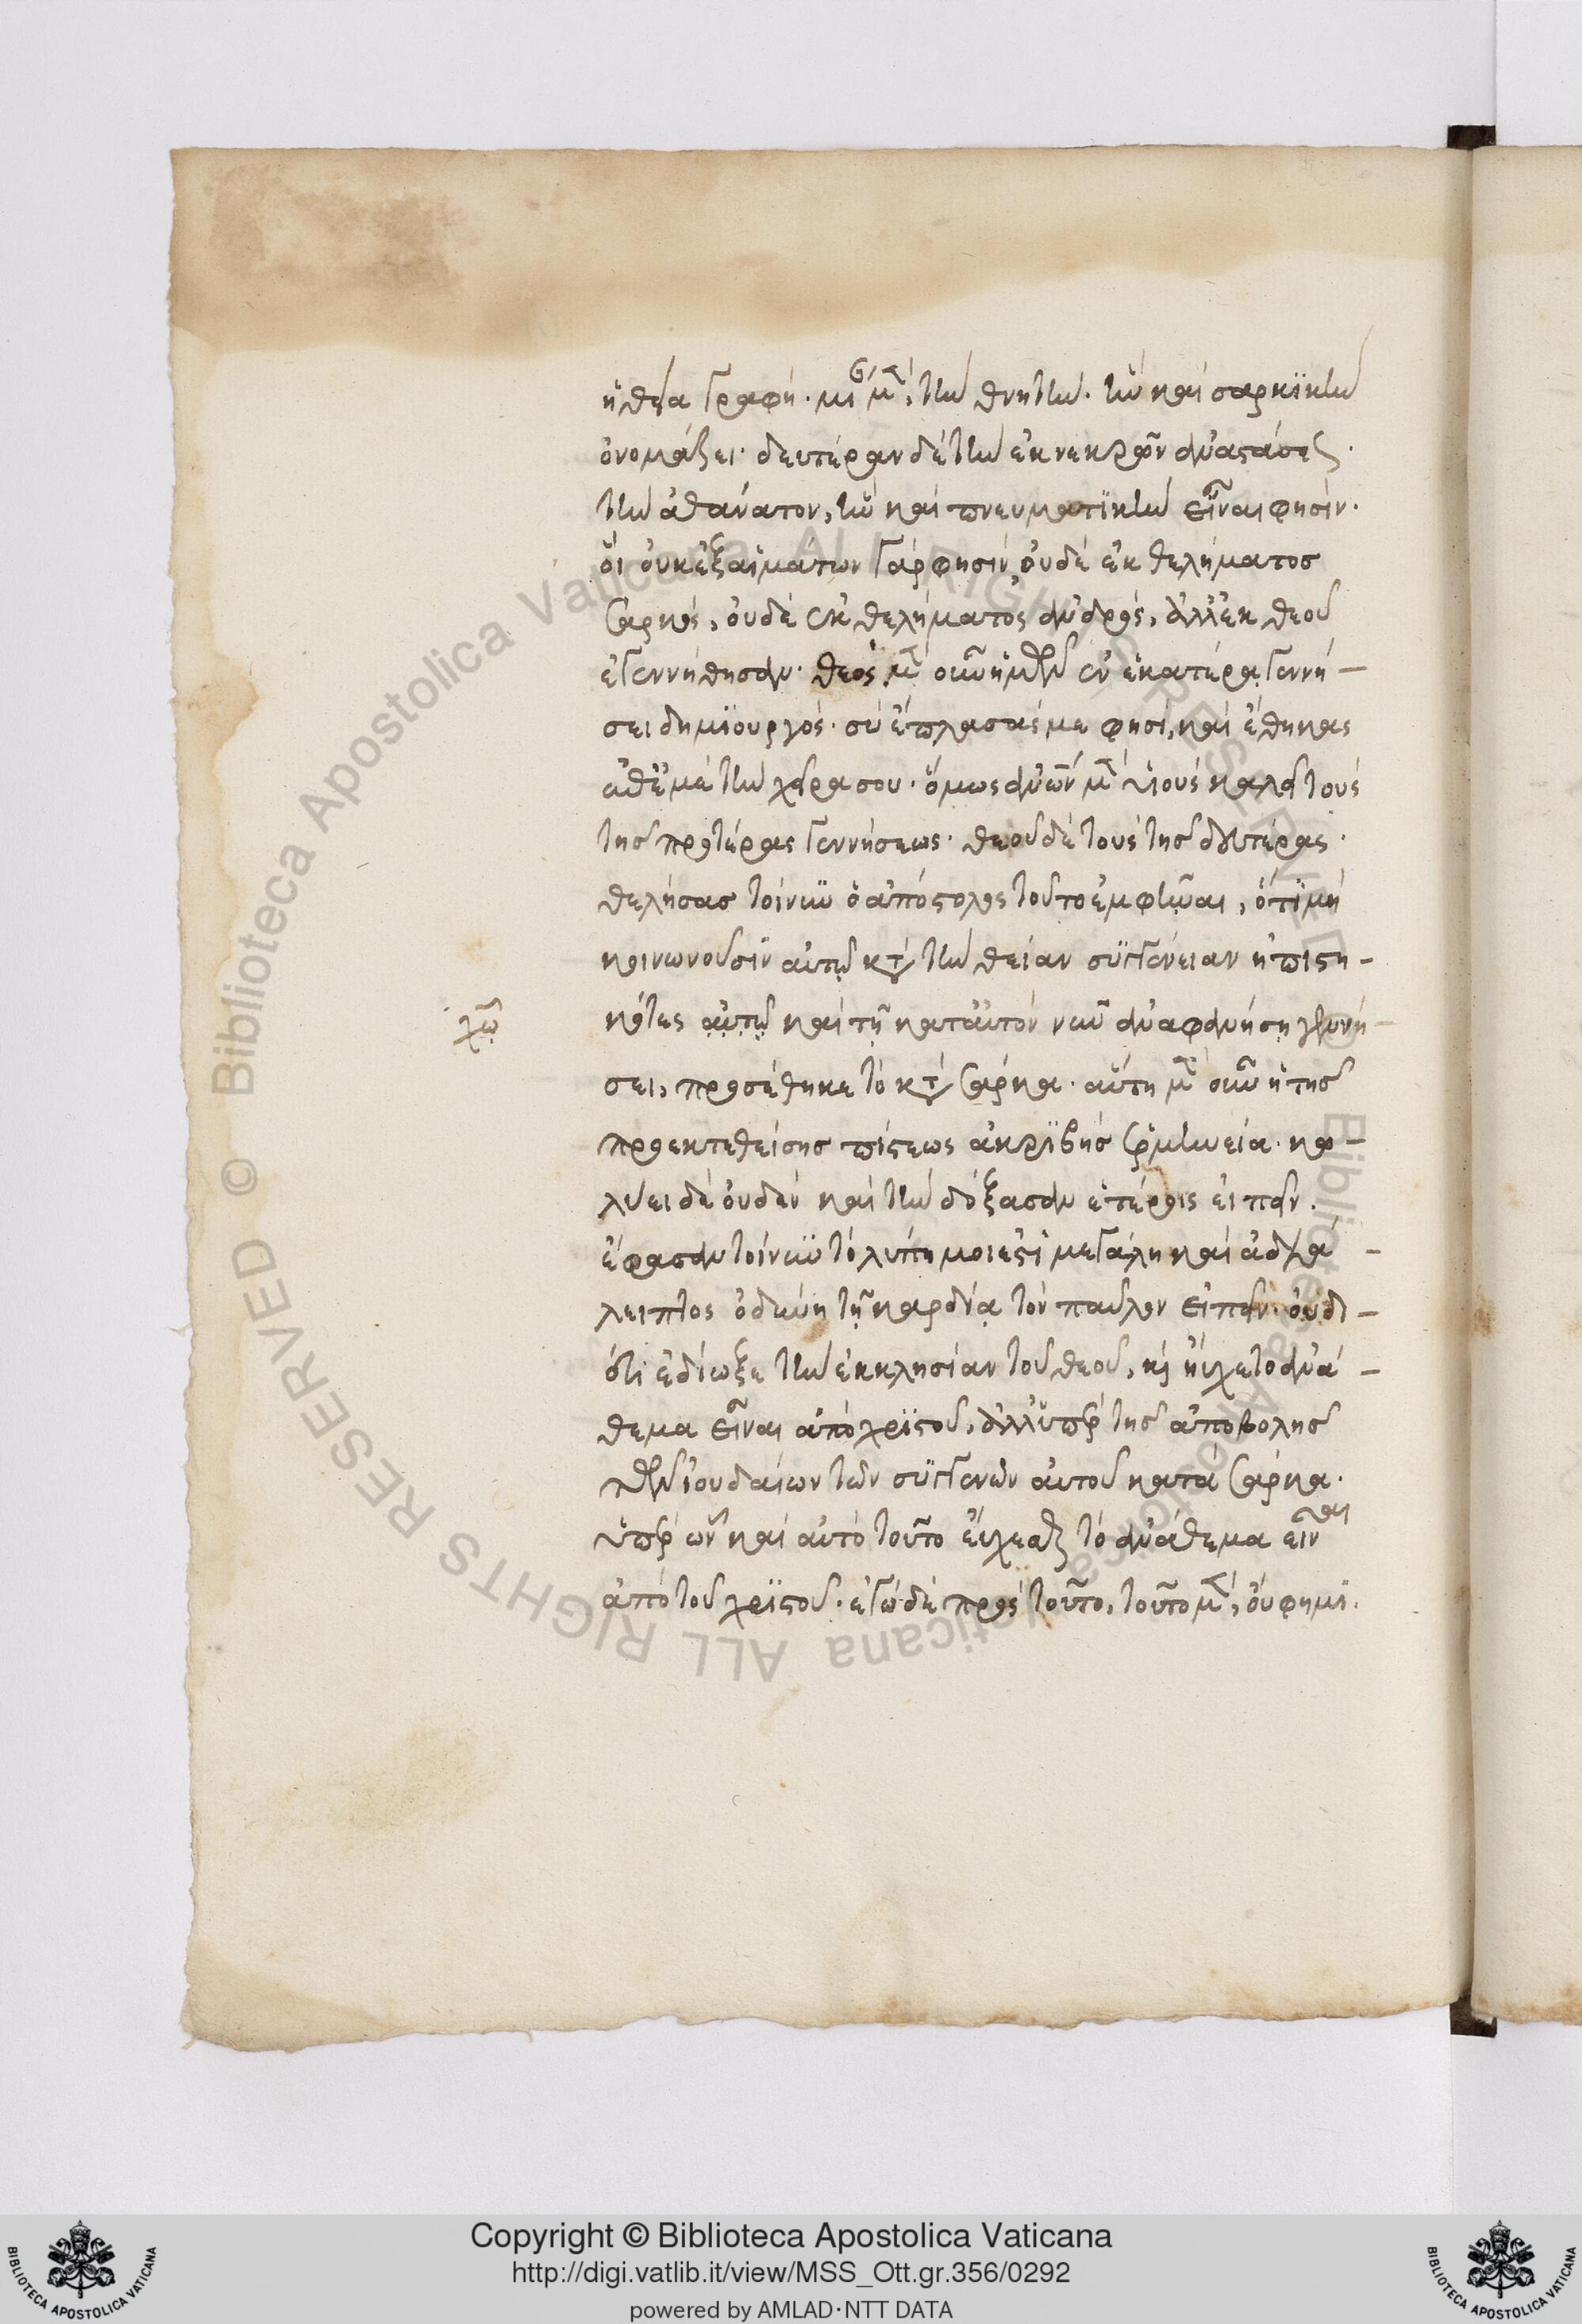 ἡ θεία γραφή· μίαν μὲν, τὴν θνητὴν· ἣν καὶ σαρκϊκὴν
ὀνομάζει· δευτέραν δὲ τὴν ἐκ νεκρῶν ἀναστάσεως·
τὴν ἀθάνατον, ἣν καὶ πνευματϊκὴν εἶναι φησίν·
ὅι ὀυκ ἐξ αἱμάτων γάρ φησιν ὀυδὲ ἐκ θελήματος
σαρκὸς, ὀυδὲ ἐκ θελήματος ἀνδρὸς, ἀλλ' ἐκ θεοῦ
ἐγεννήθησαν· θεὸς μὲν οὖν ἡμῶν ἐν ἑκατέρᾳ γεννή-
σει δημϊουργός· σὺ ἔπλασάς με φησὶ, καὶ ἔθηκας
ἐπ' ἐμὲ τὴν χεῖρα σου· ὅμως ἀνῶν μὲν ὑιοὺς καλεῖ τοὺς
τῆς προτέρας γεννήσεως· θεοῦ δὲ τοὺς τῆς δευτέρας·
θελήσας τοίνυν ὁ ἀπόστολος τοῦτο ἐμφῆναι, ὅτϊ μὴ
κοινωνοῦσιν αὐτῷ κατὰ τὴν θείαν συγγένειαν ἠπιστη-
κότες αὐτῷ καὶ τῇ κατ' αὐτὸν νῦν ἀναφανήσῃ γεννή-
χῶ
σει, προσέθηκε τὸ κατὰ σάρκα· αὕτη μὲν οὖν ἡ τῆς
προεκτεθείσης πίστεως ἀκρϊβὴς ἑρμηνεία· κω-
λύει δὲ ὀυδὲν καὶ τὴν δόξασαν ἑτέροις ἐιπεῖν·
ἔφασαν τοίνυν τὸ λύπη μοι ἐστὶ μεγάλη καὶ ἀδιά-
λειπτος ὀδύνη τῇ καρδίᾳ τὸν παῦλον εἰπεῖν· ὀυ δι-
ότι ἐδίωξε τὴν ἐκκλησίαν τοῦ θεοῦ, καὶ ηὔχετο ἀνά-
θεμα εἶναι ἀπὸ χρϊστοῦ, ἀλλ' ὑπὲρ τῆς ἀποβολῆς
τῶν ἰουδαίων τῶν συγγενῶν αὐτοῦ κατὰ σάρκα·
ὑπὲρ ὧν καὶ αὐτὸ τοῦτο ἔυχεσθαι τὸ ἀνάθεμα εἶναι
ἀπὸ τοῦ χρϊστοῦ· ἐγὼ δὲ πρὸς τοῦτο, τοῦτο μὲν, ὄυ φημϊ·
Copyright © Biblioteca Apostolica Vaticana
http://digi.vatlib.it/view/MSS_Ott.gr.356/0292
powered by AMLAD·NTT DATA